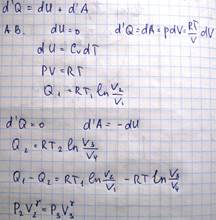 d'Q = dU + d'A
A B. dU = 0 d'Q = dA = pdV = RT/V dV
dU = CᵥdT
PV = RT
Q₁ = RT₁ ln V₂/V₁
d'Q = 0 d'A = -dU
Q₂ = RT₂ ln V₃/V₄
Q₁ - Q₂ = RT₁ ln V₂/V₁ - RT ln V₃/V₄
P₂V₂ᵞ = P₃V₃ᵞ